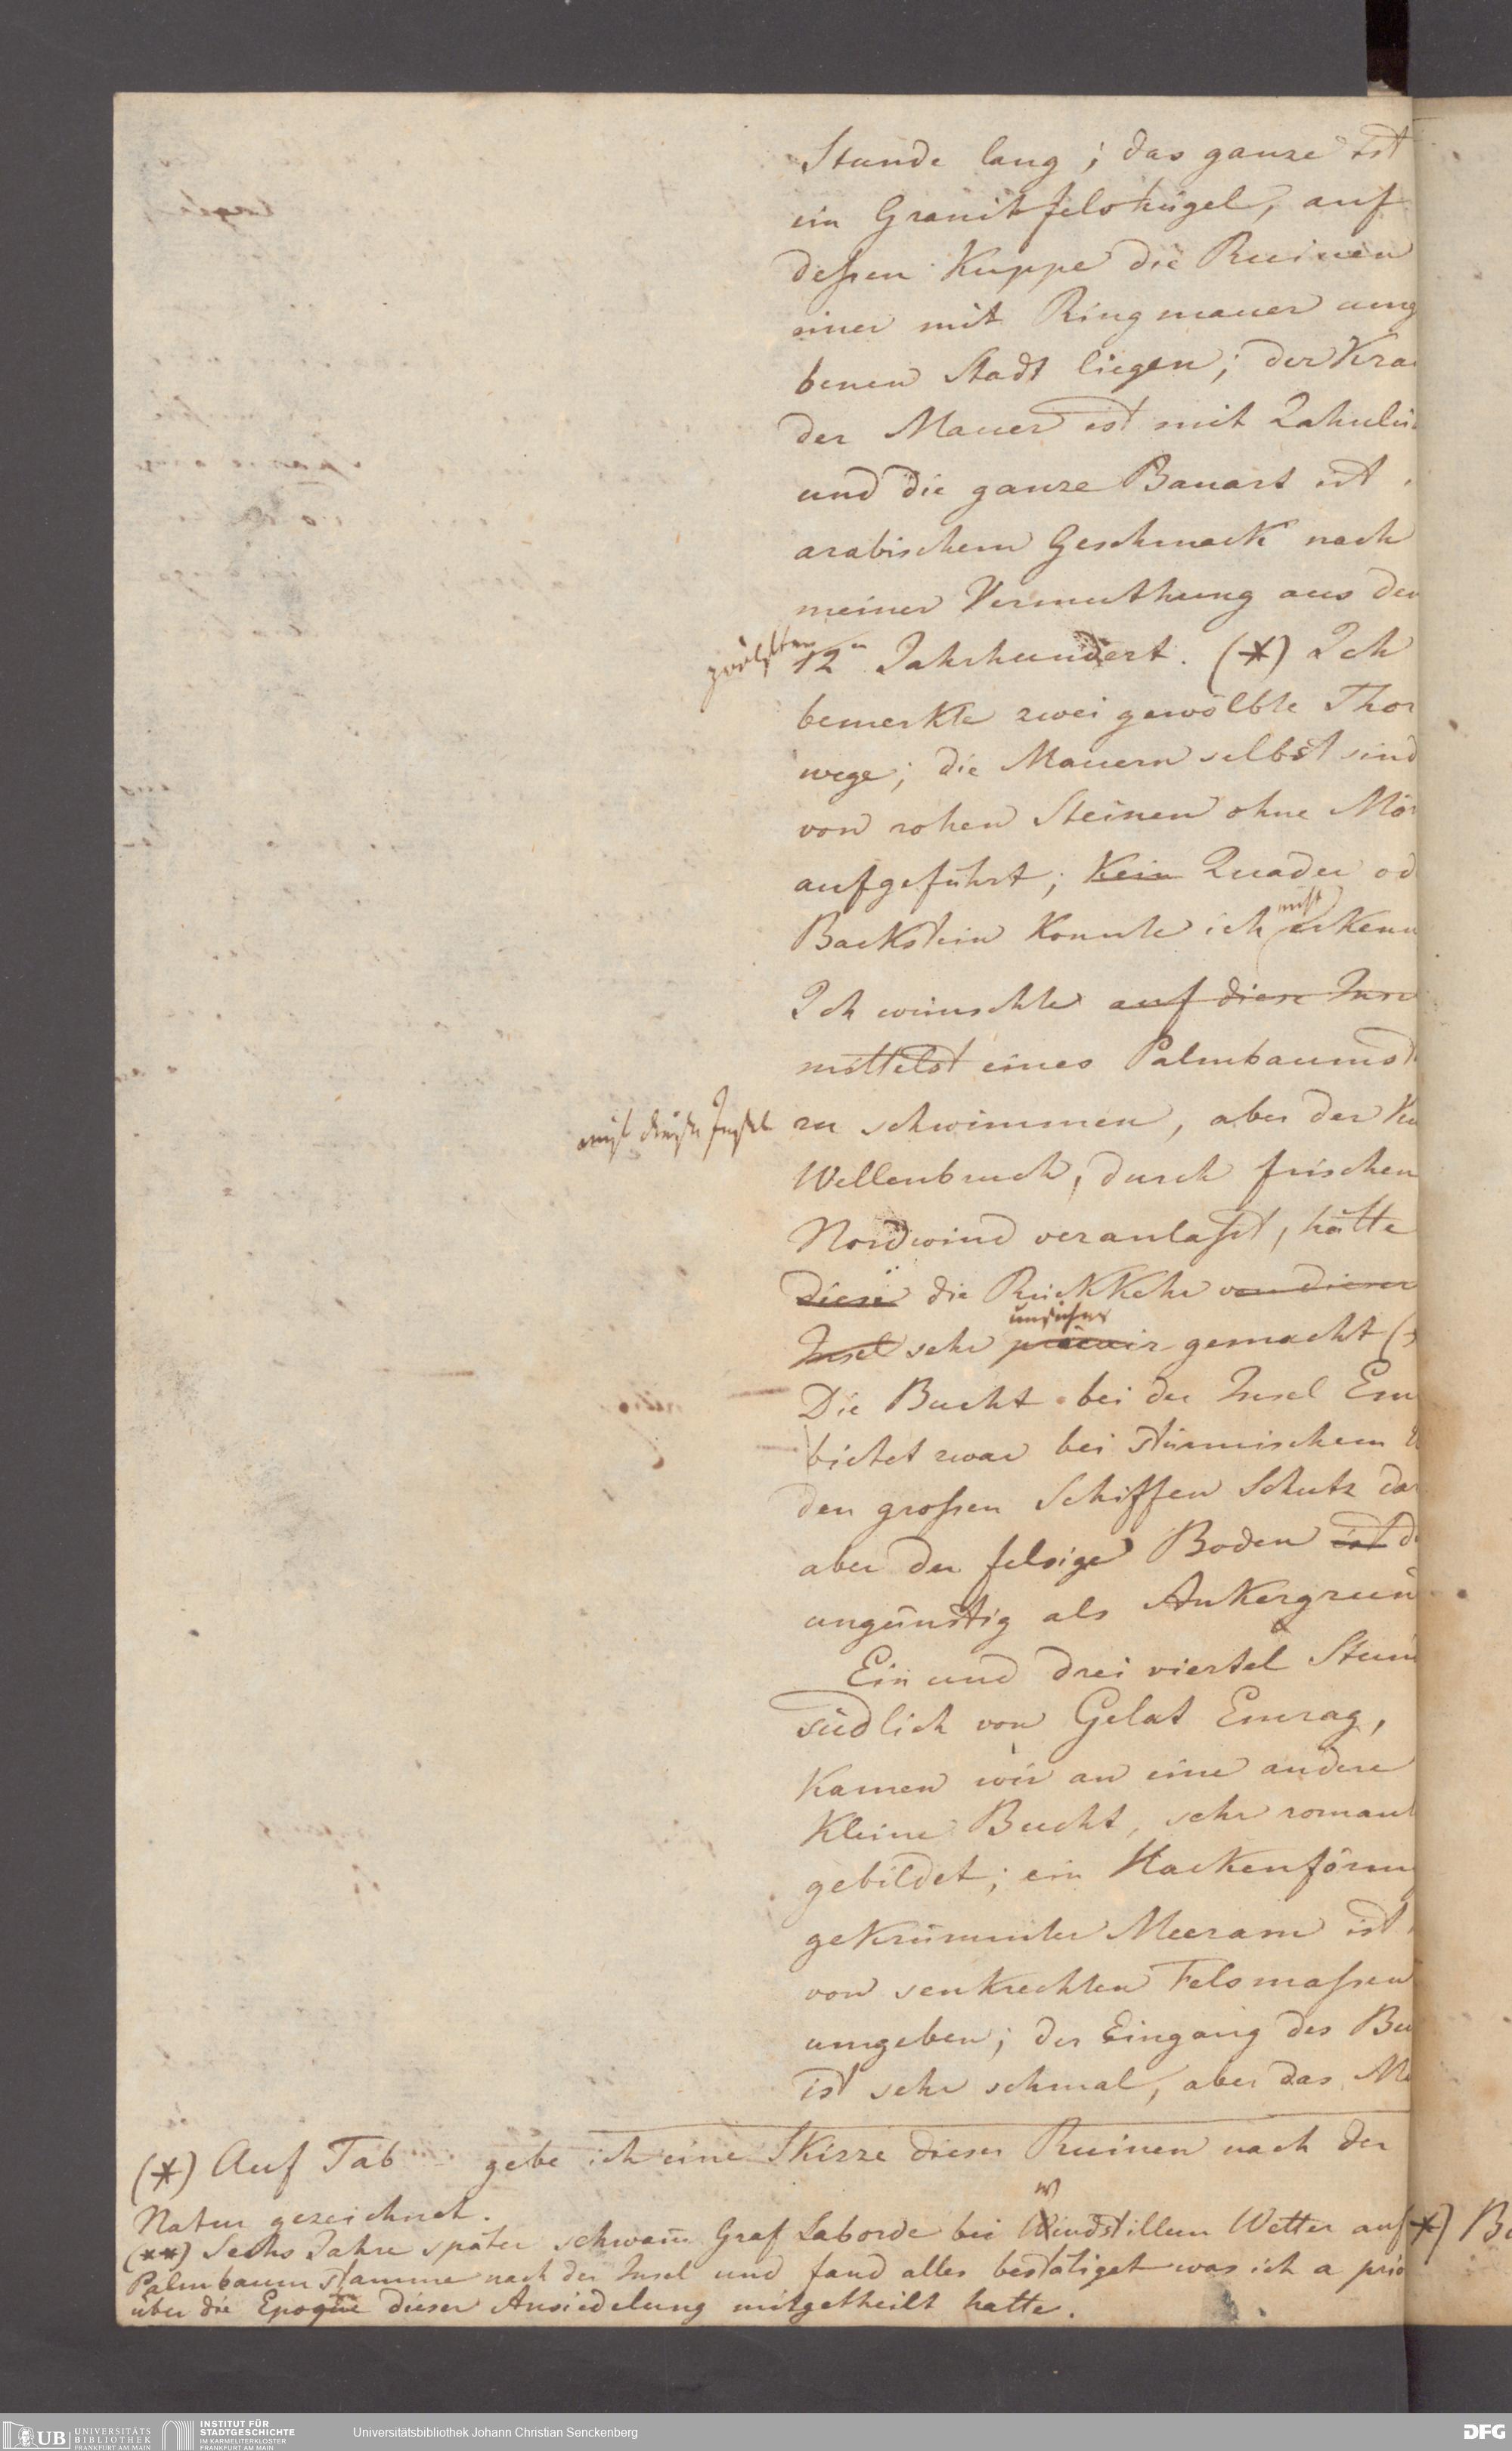 Stunde lang; das ganze ist
ein Granitfelshügel, auf
deßen Kuppe die Ruinen
einer mit Ringmauer umg
benen Stadt liegen; der Kra
der Mauer ist mit Zahnlü
und die ganze Bauart ist
arabischem Geschmack nach
meiner Vermuthung aus dem
zwölften
12n Jahrhundert. (*) Ich
bemerkte zwei gewölbte Thor
wege; die Mauern selbst sind
von rohen Steinen ohne Mör
aufgeführt; Kein Quader od
nicht
Backstein konnte ich erkenn
Ich wünschte auf diese Inse
mittelst eines Palmbaumst
auf diese Insel
zu schwimmen, aber der
Wellenbruch, durch frischen
Nordwind veranlaßt, hätte
diese die Rückkehr von dieser
unsicher
Insel sehr precair gemacht (
Die Bucht bei der Insel Em
bietet zwar bei stürmischem
den großen Schiffen Schutz dar
aber der felsige Boden ist d
ungünstig als Ankergrun
Ein und drei viertel Stun
südlich von Gelat Emrag,
Kamen wir an eine andere
Kleine Bucht, sehr romant
gebildet; ein Hackenförm
gekrümmter Meerarm ist
von senkrechten Felsmaßen
umgeben; der Eingang des Bu
ist sehr schmal, aber das Me
(*) Auf Tab gebe ich eine Skizze dieser Ruinen nach der
Natur gezeichnet.
(**) Sechs Jahre später schwam Graf Laborde bei Windstillem Wetter auf
Palmbaumstamme nach der Insel und fand alles bestätiget was ich a prio
über die Epoque dieser Ansiedelung mitgetheilt hatte.
*) Be
UB UNIVERSITÄTS
BIBLIOTHEK
FRANKFURT AM MAIN
INSTITUT FÜR
STADTGESCHICHTE
IM KARMELITERKLOSTER
FRANKFURT AM MAIN
Universitätsbibliothek Johann Christian Senckenberg
DFG